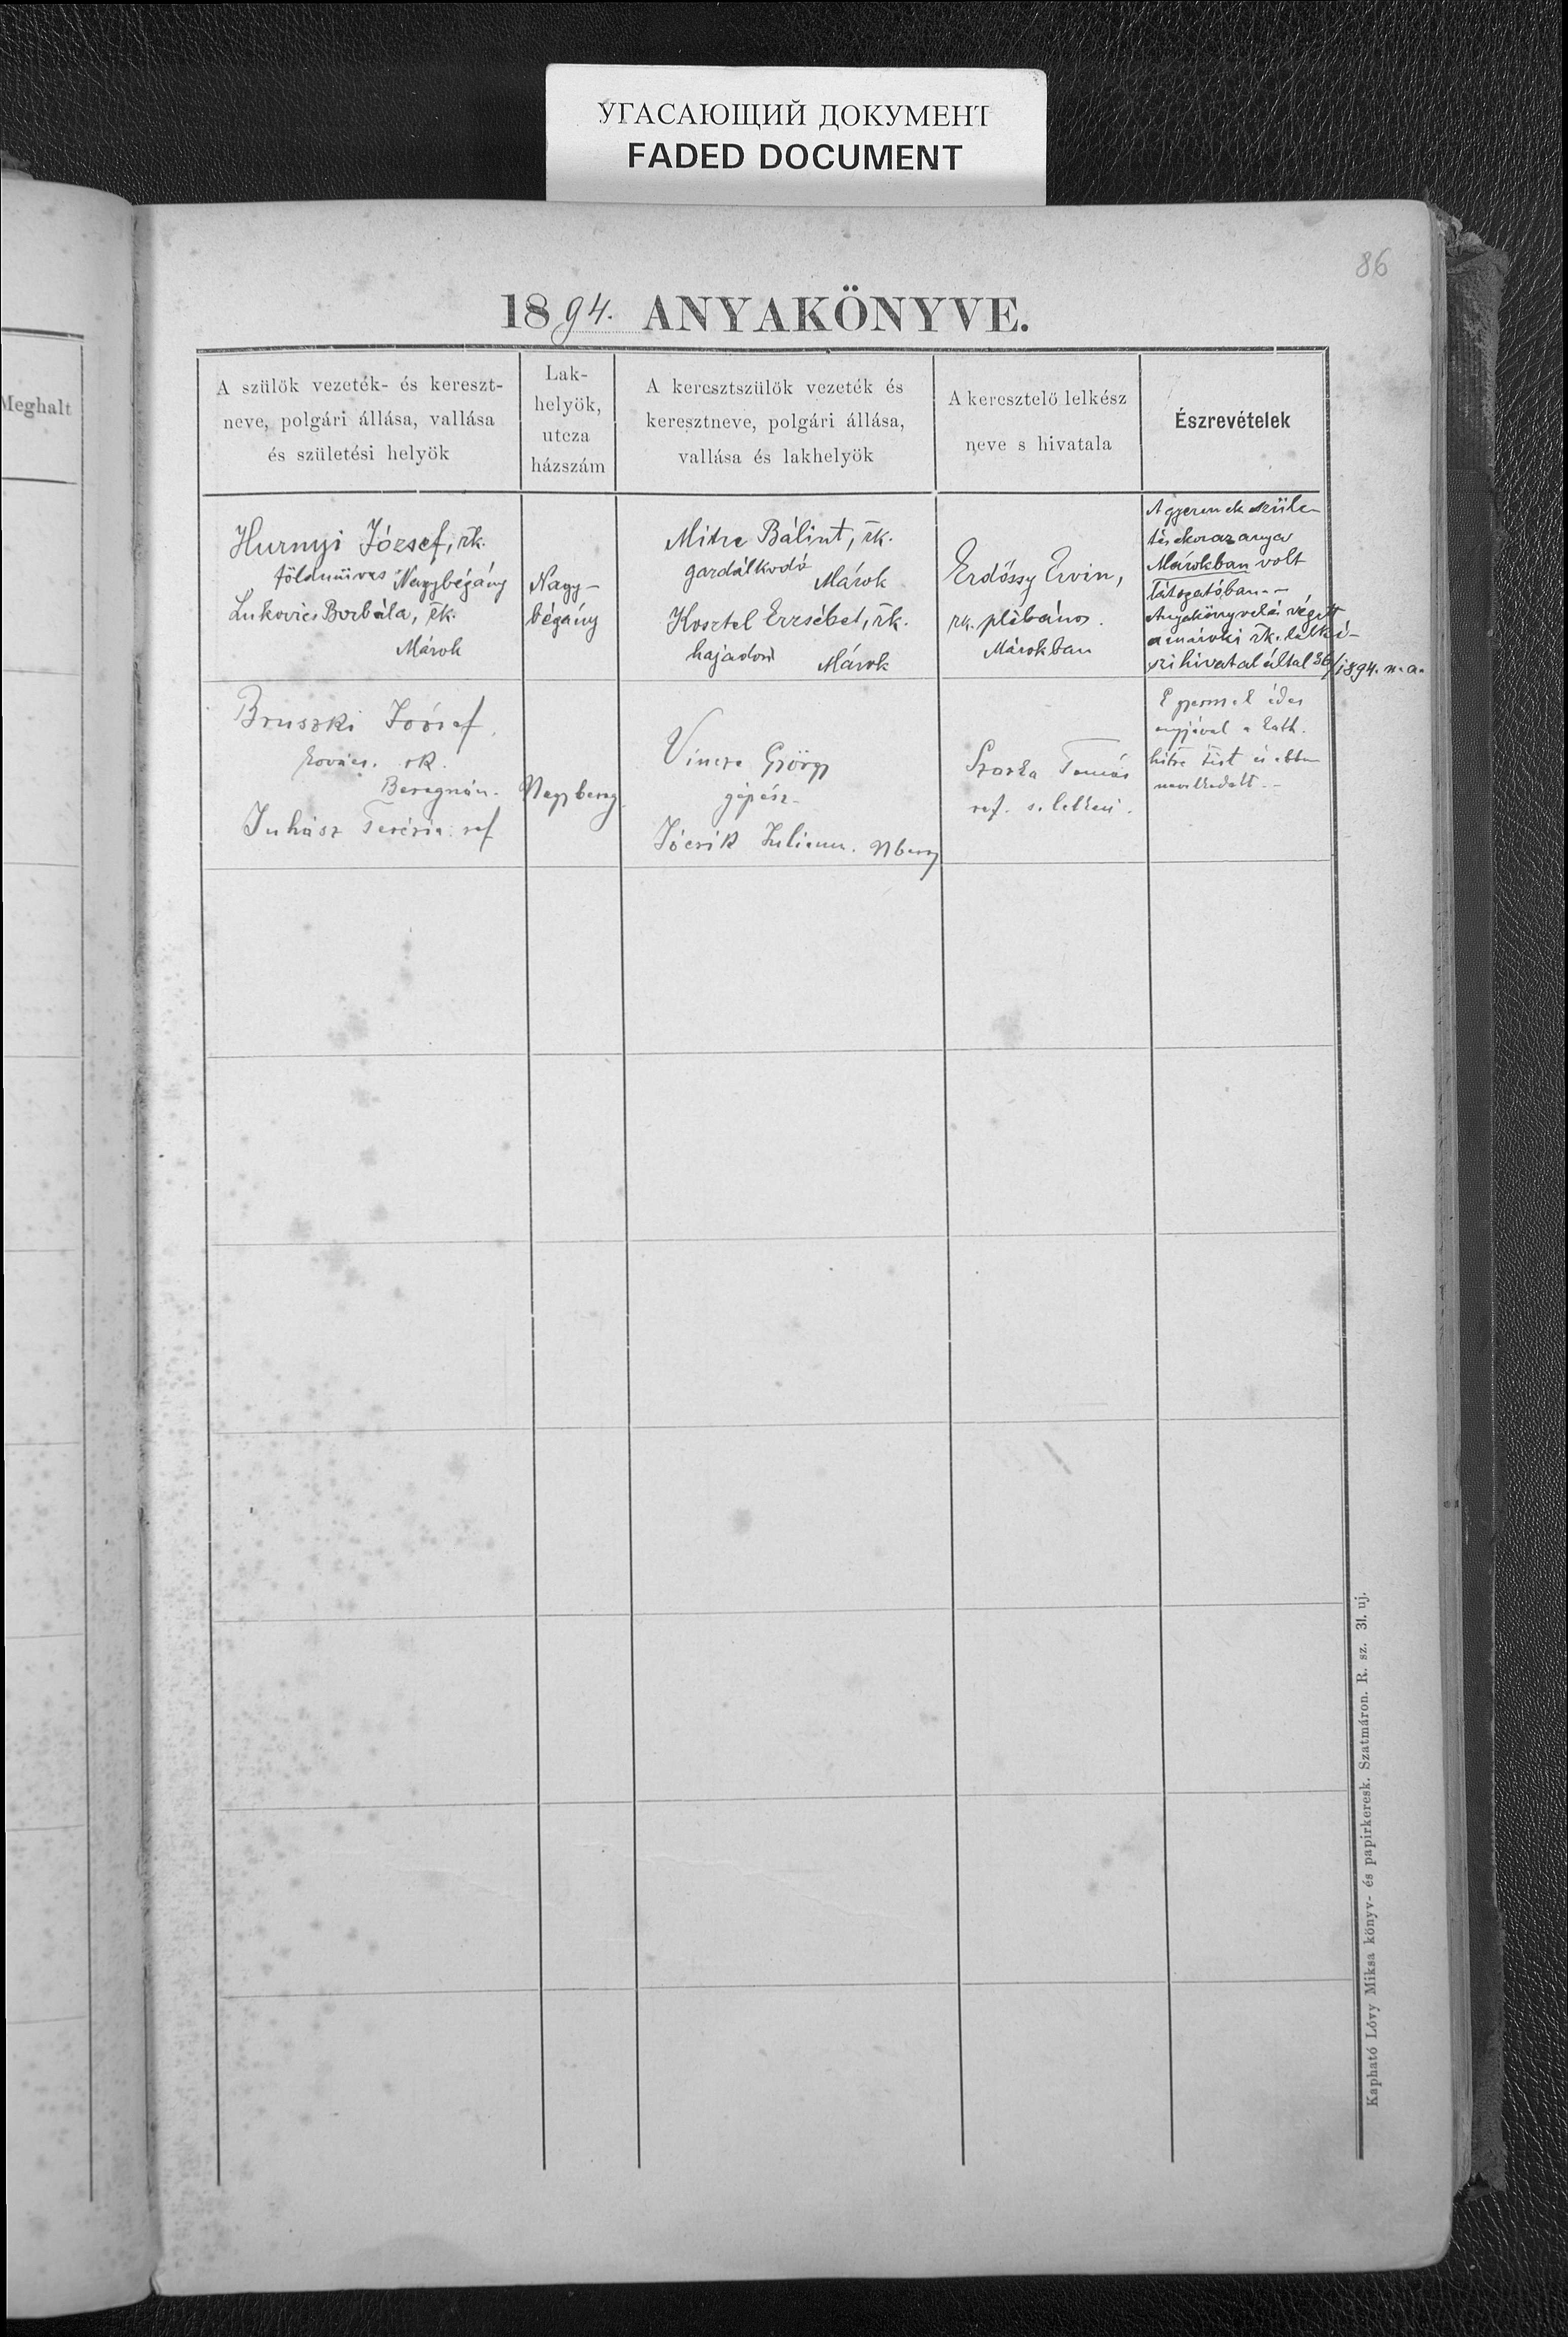 УГАСАЮЩИЙ ДОКУМЕНТ
FADED DOCUMENT
86
1894. ANYAKÖNYVE.
Meghalt
A szülök vezeték- és kereszt-
neve, polgári állása, vallása
és születési helyök
Lak-
helyök,
utcza
házszám
A keresztszülök vezeték és
keresztneve, polgári állása,
vallása és lakhelyök
A keresztelö lelkész
neve s hivatala
Észrevételek
Hurnyi József, rk.
földmüves Nagybégány
Lukovics Borbála, rk.
Márok
Nagy-
bégány
Mitre Bálint, rk.
gazdálkodó
Márok
Kosztel Erzsébet, rk.
hajadon Márok
Erdőssy Ervin,
rk. plébános.
Márokban
A gyermek szüle-
tésekor az anya
Márokban volt
látogatóban.-
Anyakönyvelés végett
a mároki rk. lelké-
szi hivatal által 36/1894. n. a.
Bruszki József,
kovács. rk.
Juhász Terézia ref
Nagybereg
Vincze György
gépész
Julianna. Nbereg
Tamás
ref. s. lelkész.
E gyermek édes
anyjával a kath.
hitre tért és abban
Kapható Lővy Miksa könyv- és papirkeresk. Szatmáron. R. sz. 31. uj.